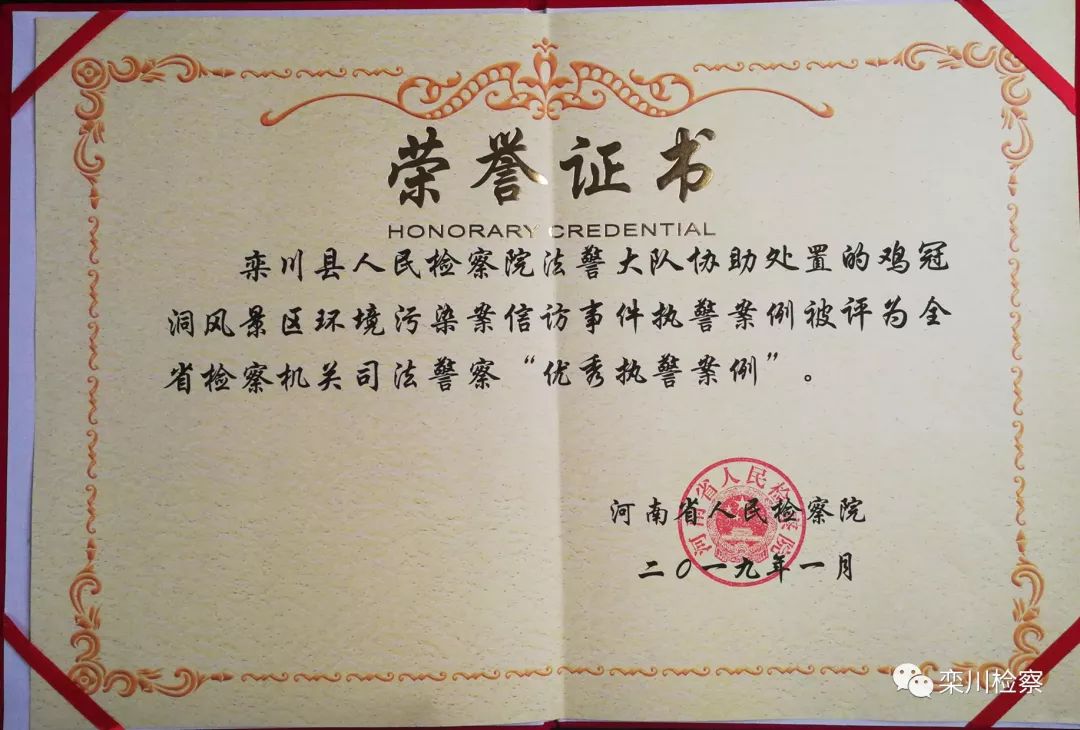 荣誉证书
HONORARY CREDENTIAL
栾川县人民检察院法警大队协助处置的鸡冠
洞风景区环境污染案信访事件执警案例被评为全
省检察机关司法警察“优秀执警案例”。
河南省人民检察院
河南省人民检察院
二〇一九年一月
栾川检察